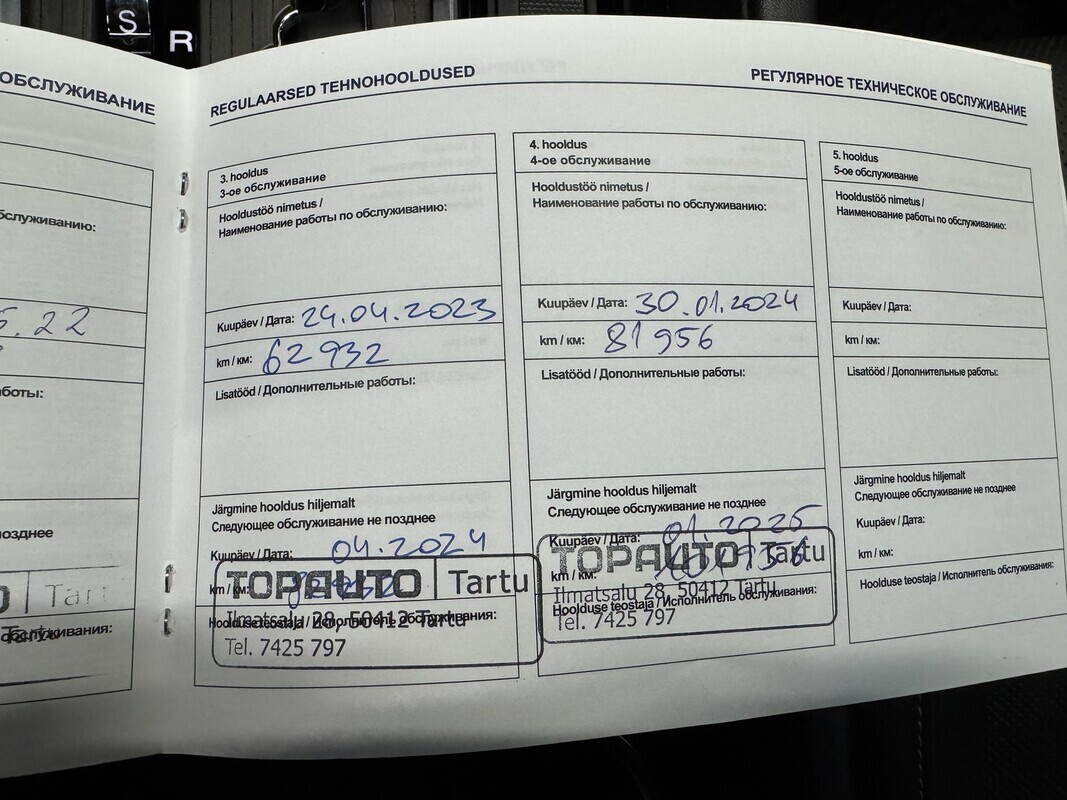 S
R
ОБСЛУЖИВАНИЕ
обслуживанию:
5.22
боты:
позднее
Tart
обслуживания:
REGULAARSED TEHNOHOOLDUSED
РЕГУЛЯРНОЕ ТЕХНИЧЕСКОЕ ОБСЛУЖИВАНИЕ
3. hooldus
3-ое обслуживание
Hooldustöö nimetus /
Наименование работы по обслуживанию:
Kuupäev / Дата: 24.04.2023
km / км: 62 932
Lisatööd / Дополнительные работы:
Järgmine hooldus hiljemalt
Следующее обслуживание не позднее
Kuupäev / Дата: 04.2024
km / км:
Hoolduse teostaja / Исполнитель обслуживания:
TOPAUTO | Tartu
Ilmatsalu 28, 50412 Tartu
Tel. 7425 797
4. hooldus
4-ое обслуживание
Hooldustöö nimetus /
Наименование работы по обслуживанию:
Kuupäev / Дата: 30.01.2024
km / км: 81 956
Lisatööd / Дополнительные работы:
Järgmine hooldus hiljemalt
Следующее обслуживание не позднее
Kuupäev / Дата: 01.2025
km / км:
Hoolduse teostaja / Исполнитель обслуживания:
TOPAUTO | Tartu
Ilmatsalu 28, 50412 Tartu
Tel. 7425 797
5. hooldus
5-ое обслуживание
Hooldustöö nimetus /
Наименование работы по обслуживанию:
Kuupäev / Дата:
km / км:
Lisatööd / Дополнительные работы:
Järgmine hooldus hiljemalt
Следующее обслуживание не позднее
Kuupäev / Дата:
km / км:
Hoolduse teostaja / Исполнитель обслуживания: